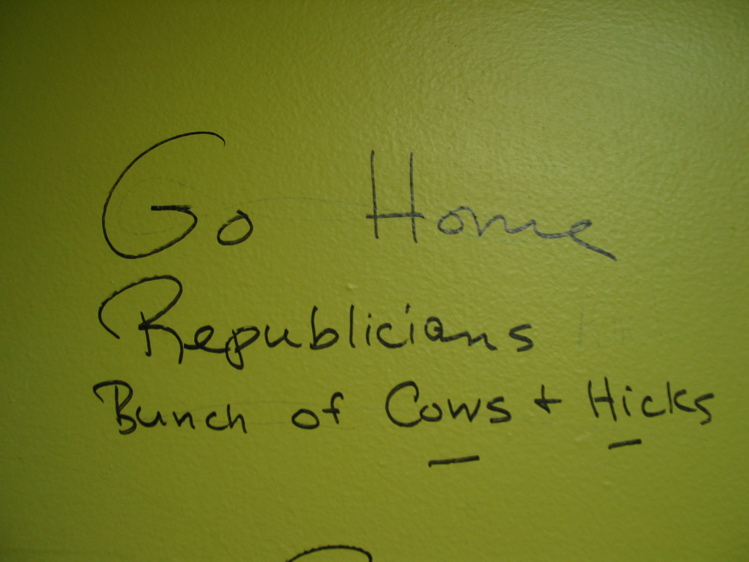 Go Home
Republicians
Bunch of Cows + Hicks